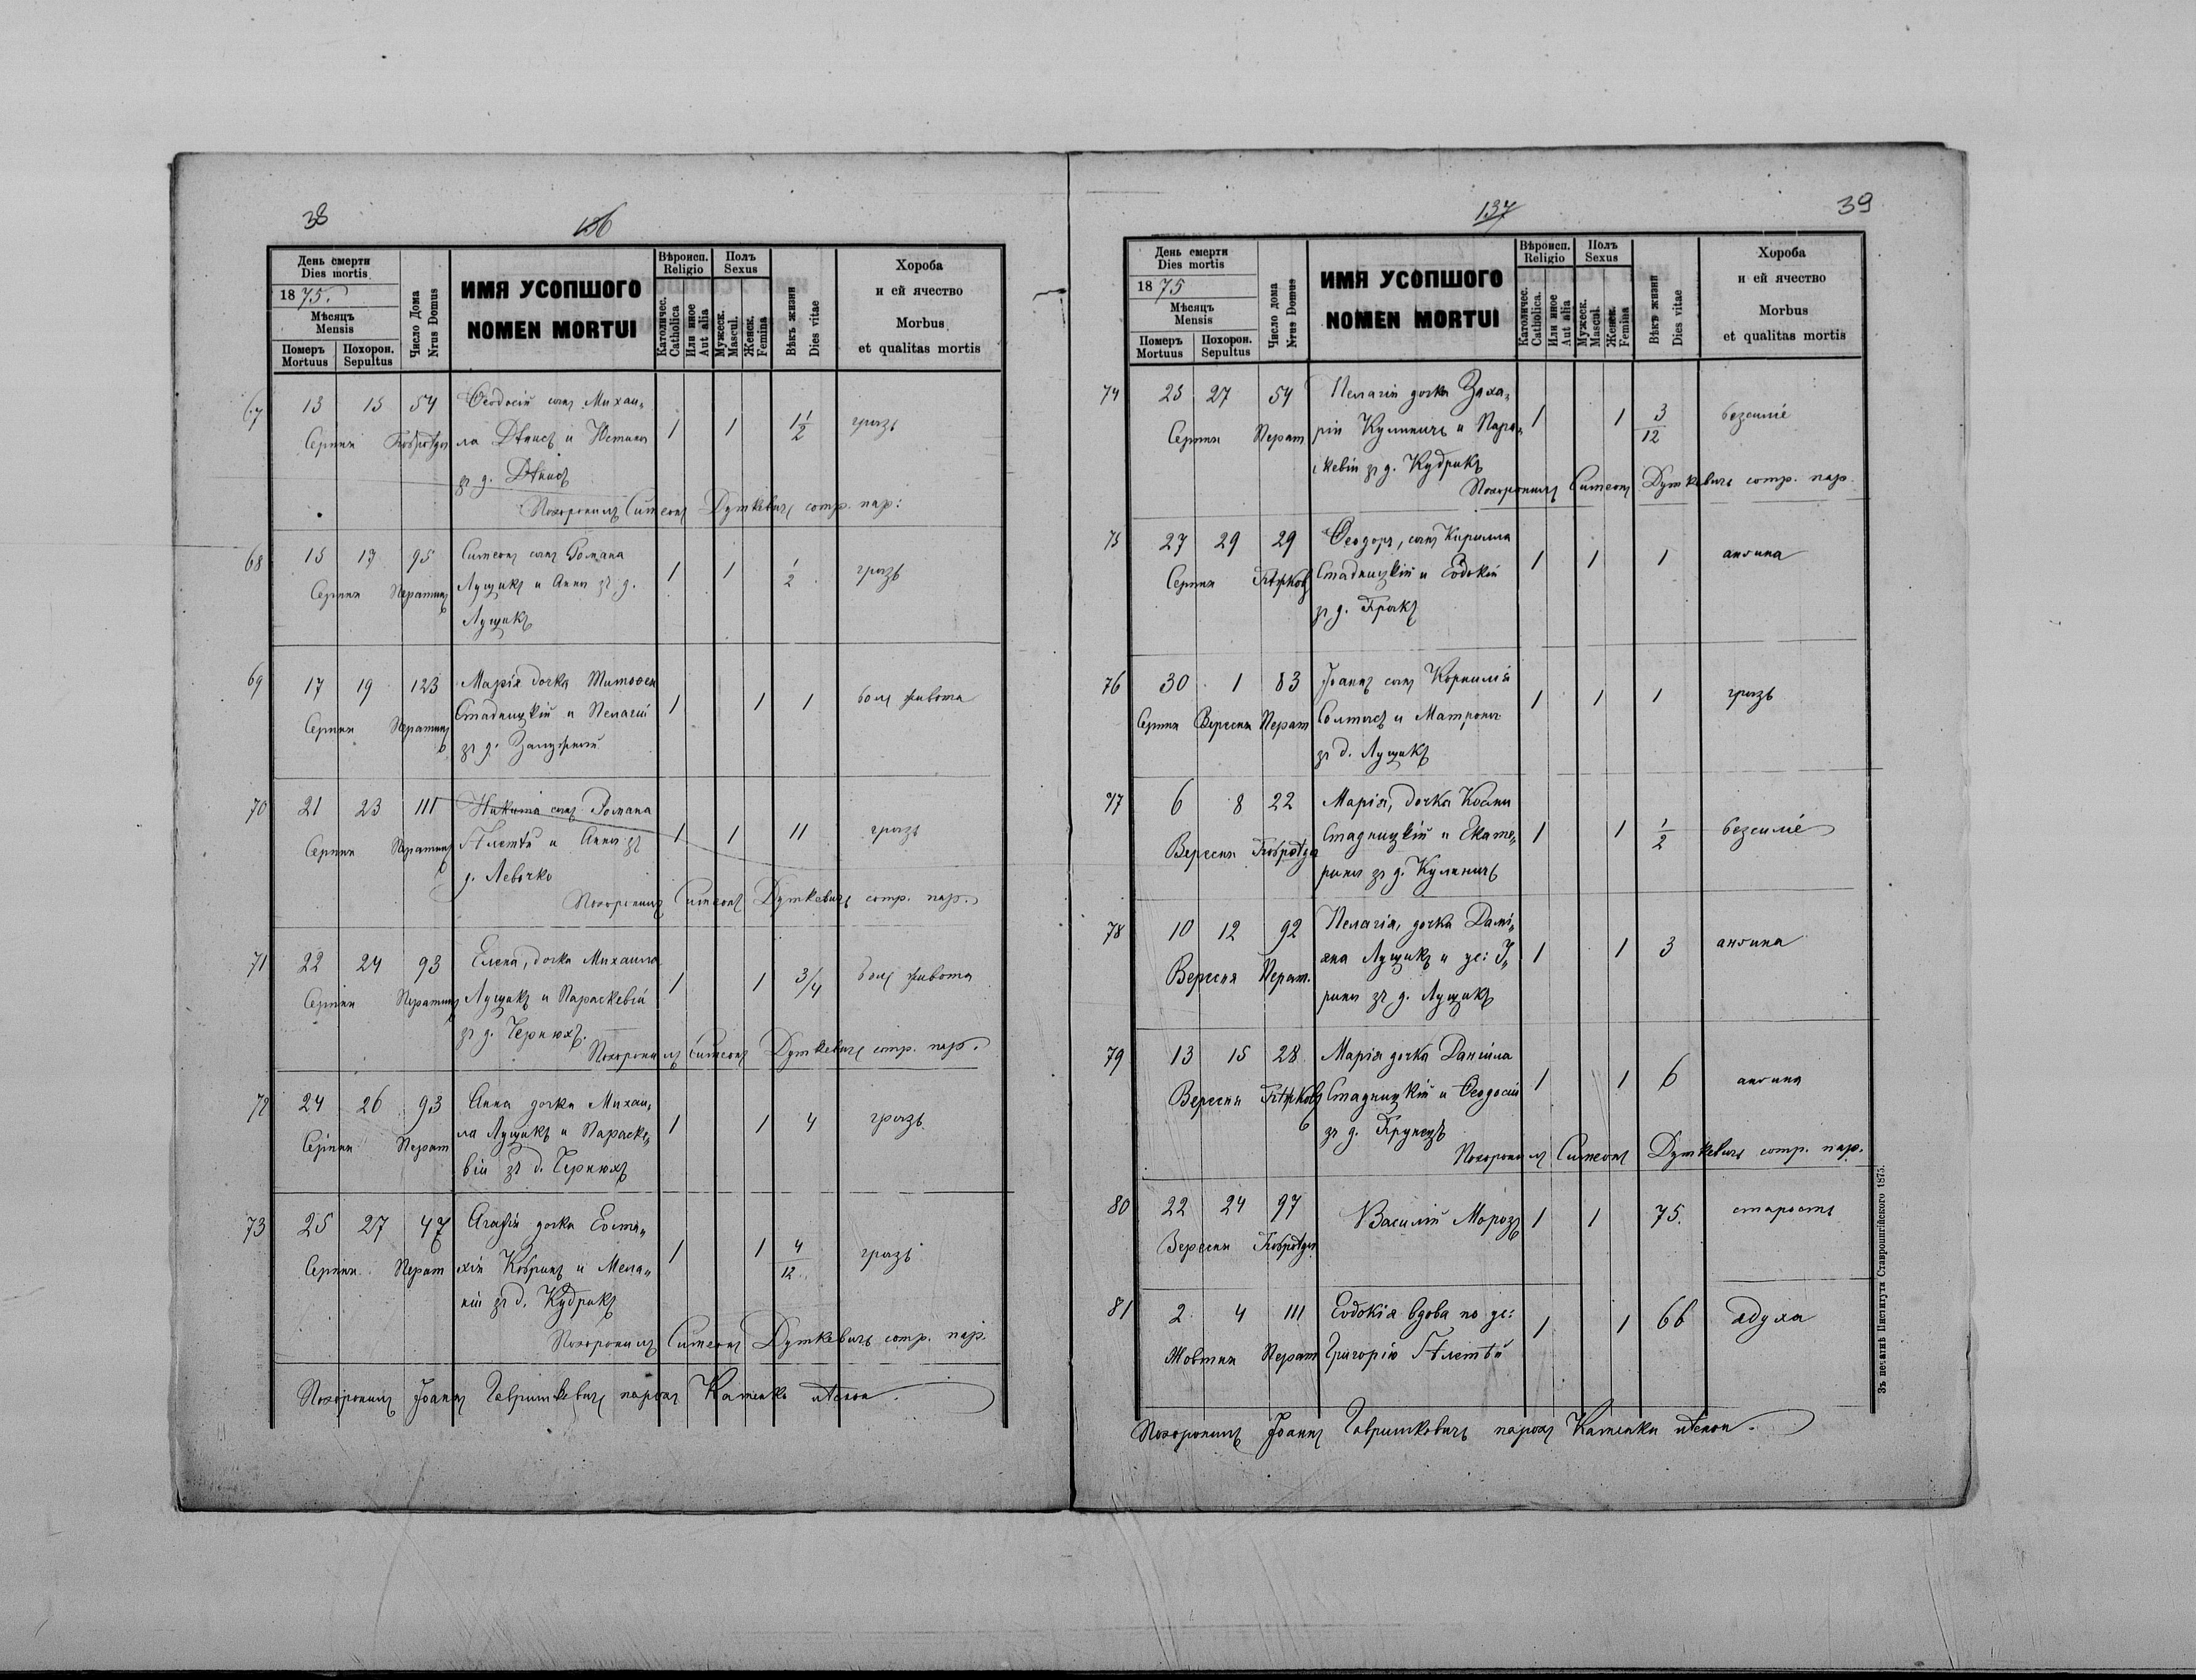 38
136
День смерти
Dies mortis
1875.
Мѣсяцъ
Mensis
Померъ
Mortuus
Похорон.
Sepultus
Число Дома
Nrus Domus
ИМЯ УСОПШОГО
NOMEN MORTUI
Вѣроисп.
Religio
Католичес.
Catholica
Или иное
Aut alia
Полъ
Sexus
Мужеск.
Mascul.
Женск.
Femina
Вѣкъ жизни
Dies vitae
Хороба
и ей ячество
Morbus
et qualitas mortis
67 13 15 54 Ѳеодосій сынъ Михаи„ 1 1 1 1/2 гразь
Серпня ла Дѣнисъ и Юстина
зъ д. Дѣнисъ
Похоронилъ Симеонъ Дуткевичъ сотр. пар:
68 15 17 95 Симеонъ сынъ Романа 1 1 1/2 гразь
Серпня Ператинъ Лущикъ и Анны зъ д.
Лущикъ
69 17 19 123 Марія дочка Тимоѳея 1 1 1 боль живота
Серпня Ператинъ Стадницкій и Пелагій
зъ д.
70 21 23 111 Никита сынъ Романа 1 1 11 гразь
Серпня Ператинъ и Анны зъ
д. Левочко
Похоронилъ Симеонъ Дуткевичъ сотр. пар.
71 22 24 93 Елена, дочка Михаила 1 1 3/4 боль живота
Серпня Ператинъ Лущикъ и Параскевіи
зъ д. Чернюхъ.
Похоронилъ Симеонъ Дуткевичъ сотр. пар.
72 24 26 93 Анна дочка Михаи„ 1 1 4 гразь
Серпня Перат ла Лущикъ и Параске„
віи зъ д. Чернюхъ
73 25 27 47 Агафія дочка Еоста„ 1 1 4/12 гразь
Серпня Перат хія Кобринъ и Мела„
ніи зъ д. Кудрикъ
Похоронилъ Симеонъ Дуткевичъ сотр. пар.
Похоронилъ Іоаннъ Гавришкевичъ парохъ Каменко
137
39
День смерти
Dies mortis
1875
Мѣсяцъ
Mensis
Померъ
Mortuus
Похорон.
Sepultus
Число дома
Nrus Domus
ИМЯ УСОПШОГО
NOMEN MORTUI
Вѣроисп.
Religio
Католичес.
Catholica.
Или иное
Aut alia
Полъ
Sexus
Мужеск.
Mascul.
Женск.
Femina
Вѣкъ жизни
Dies vitae
Хороба
и ей ячество
Morbus
et qualitas mortis
74 25 27 54 Пелагія дочка Заха„ 1 1 3/12 безсиліе
Серпня Перат ріи Кулиничъ и Пара„
скевіи зъ д. Кудрикъ
Похоронилъ Симеонъ Дуткевичъ сотр. пар.
75 27 29 29 Ѳеодоръ, сынъ Кирилла 1 1 1 ангина
Серпня Стадницкій и Еѵдокіи
зъ д.
76 30 1 83 Іоаннъ сынъ Корнилія 1 1 1 гразь
Серпня Вересня Перат Солтысъ и Матроны
зъ д. Лущикъ
77 6 8 22 Марія, дочка Косьмы 1 1 1/2 безсиліе
Вересня Стадницкій и Екате„
рины зъ д. Кулиничъ
78 10 12 92 Пелагія, дочка Дамі„ 1 1 3 ангина
Вересня Перат. яна Лущикъ и ус: І„
рины зъ д. Лущикъ
79 13 15 28 Марія дочка Даніила 1 1 6 ангина
Вересня Стадницкій и Ѳеодосіи
зъ д.
Похоронилъ Симеонъ Дуткевичъ сотр. пар.
80 22 24 97 Василій Морозъ 1 1 75. старость
Вересня
81 2 4 111 Еѵдокія вдова по ус: 1 1 66 ядуха
Жовтня Перат Григорію
Похоронилъ Іоаннъ Гавришкевичъ парохъ Каменки
Зъ печатнѣ Института Ставропигійского 1875.